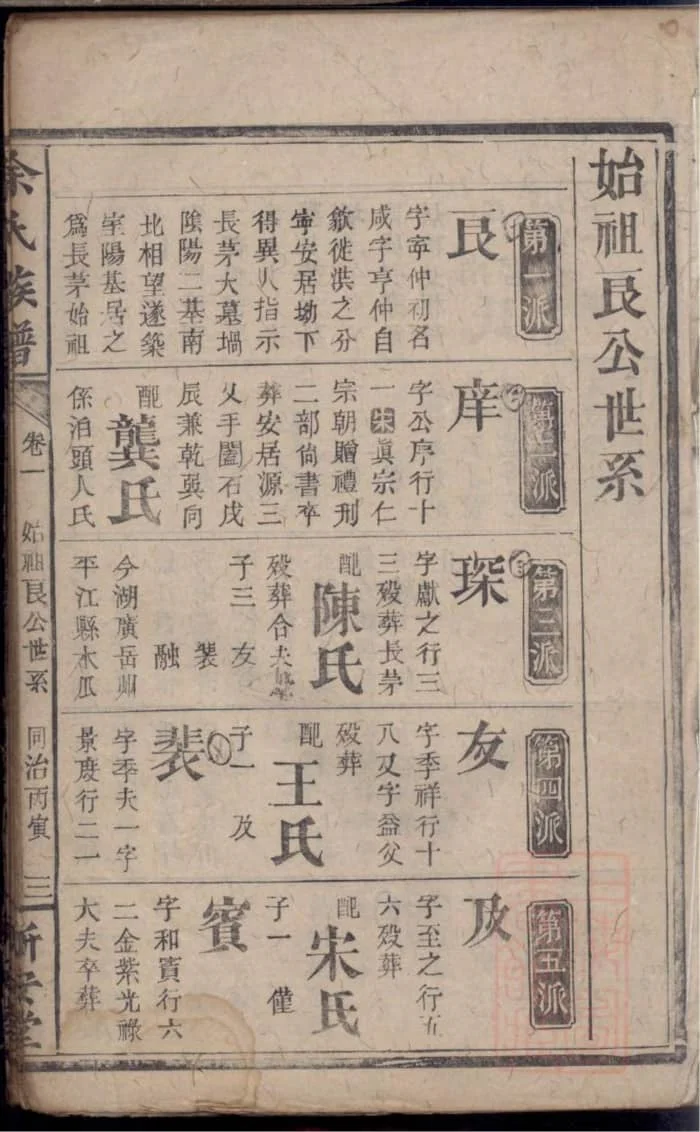 始祖艮公世系
第一派
艮
字寜仲初名
咸字亨仲自
歙徙洪之分
寧安居坳下
得異人指示
長茅大墓塌
陰陽二基南
北相望遂築
室陽基居之
為長茅始祖
第二派
庠
字公序行十
一宋真宗仁
宗朝贈禮刑
二部尙書卒
葬安居源三
乂手闔石戌
辰兼乾巽向
配龔氏
係泊頭人氏
第三派
琛
字獻之行三
三殁葬長茅
配陳氏
殁葬合夫
子三 友
裴
融
今湖廣岳州
平江縣木瓜
第四派
友
字季祥行十
八又字益父
殁葬
配王氏
子一 及
裴
字季夫一字
景度行二一
第五派
及
字至之行五
六殁葬
配宋氏
子一 僅
賓
字和賓行六
二金紫光祿
大夫卒葬
余氏族譜
卷一
始祖艮公世系
同治丙寅
三
新安堂